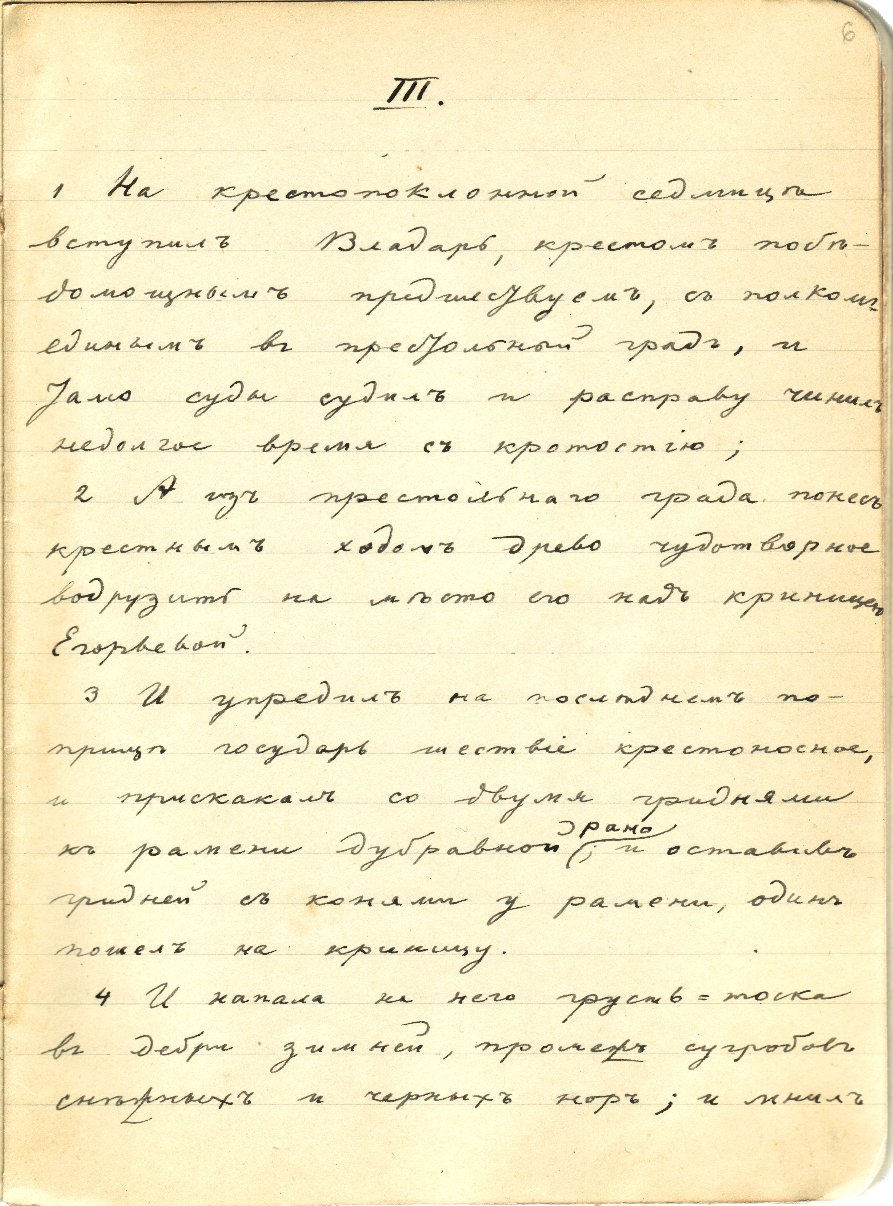 6
III.
1 На крестопоклонной седмицѣ
вступилъ Владарь, крестомъ побѣ-
домощнымъ предшествуемъ, съ полкомъ
единымъ въ престольный градъ, и
тамо суды судилъ и расправу чинилъ
недолгое время съ кротостію;
2 А изъ престольнаго града понесъ
крестнымъ ходомъ древо чудотворное
водрузить на мѣсто его надъ криницею
Егорьевой.
3 И упредилъ на послѣднемъ по-
прищѣ государь шествіе крестоносное,
и прискакалъ со двумя гриднями
рано
къ рамени дубравной; и оставивъ
гридней съ конями у рамени, одинъ
пошелъ на криницу.
4 И напала на него грусть=тоска
въ дебри зимней, промежъ сугробовъ
снѣжныхъ и черныхъ норъ; и мнилъ